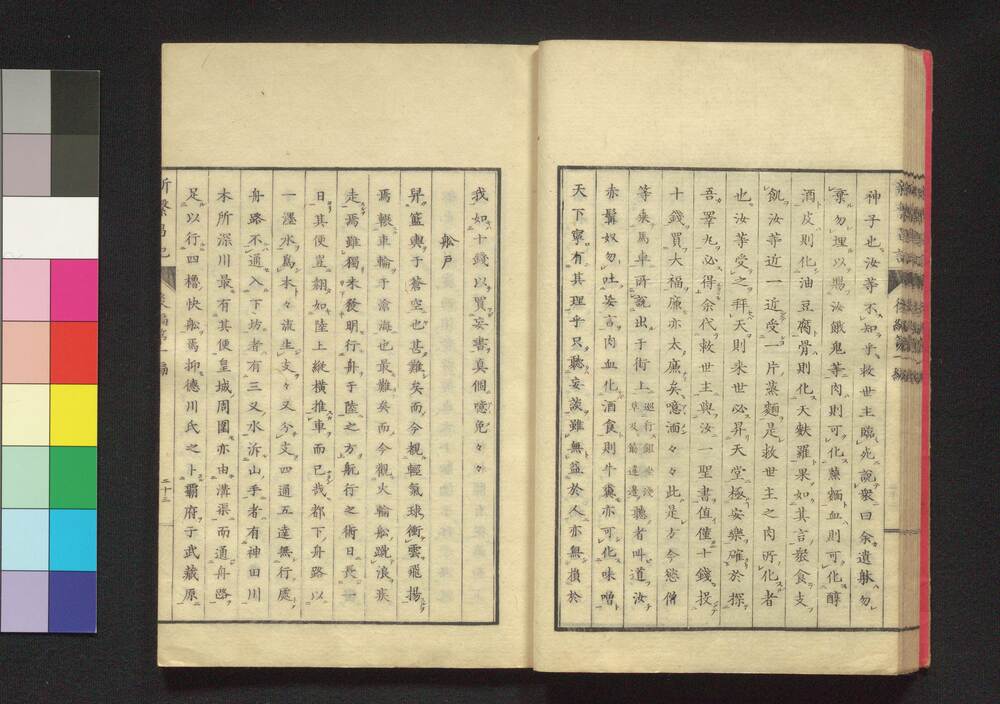 神子也汝等不知乎救世主臨死說衆曰余遺骸勿
棄勿埋以賜汝餓鬼等肉則可化蒸麵血則可化醇
酒皮則化油豆腐骨則化天麩羅果如其言衆食支
飢汝等近一近受一片蒸麵是救世主之肉所化者
也汝等受之拜天則來世必昇天堂極安樂確於探
吾睪丸必得余代救世主與汝一聖書值僅十錢投
十錢買大福廉亦太廉矣噫湎々々此是方今慾僧
等乘馬車所說出于街上聽者叫道汝
赤鬚奴勿吐妄言肉血化酒食則牛糞亦可化味噌
天下寧有其理乎只聽妄談雖無益於人亦無損於
我如十錢以買妄書真個噫免々々
舩戶
昇籃輿于蒼空也甚難矣而今觀輕氣球衝雲飛揚
焉轍車輪于滄海也最難矣而今觀火輪舩蹴浪疾
走焉雖獨未發明行舟于陸之方航行之術日長
日其便豈翅如陸上縱橫推車而已哉都下舟路以
一溼水為本々流生支々又分支四通五達無行處
舟路不通入下坊者有三叉水泝山手者有神田川
本所深川最有其便皇城周圍亦由溝渠而通舟路
足以行四櫓快舩焉抑德川氏之卜霸府于武藏原
二十三